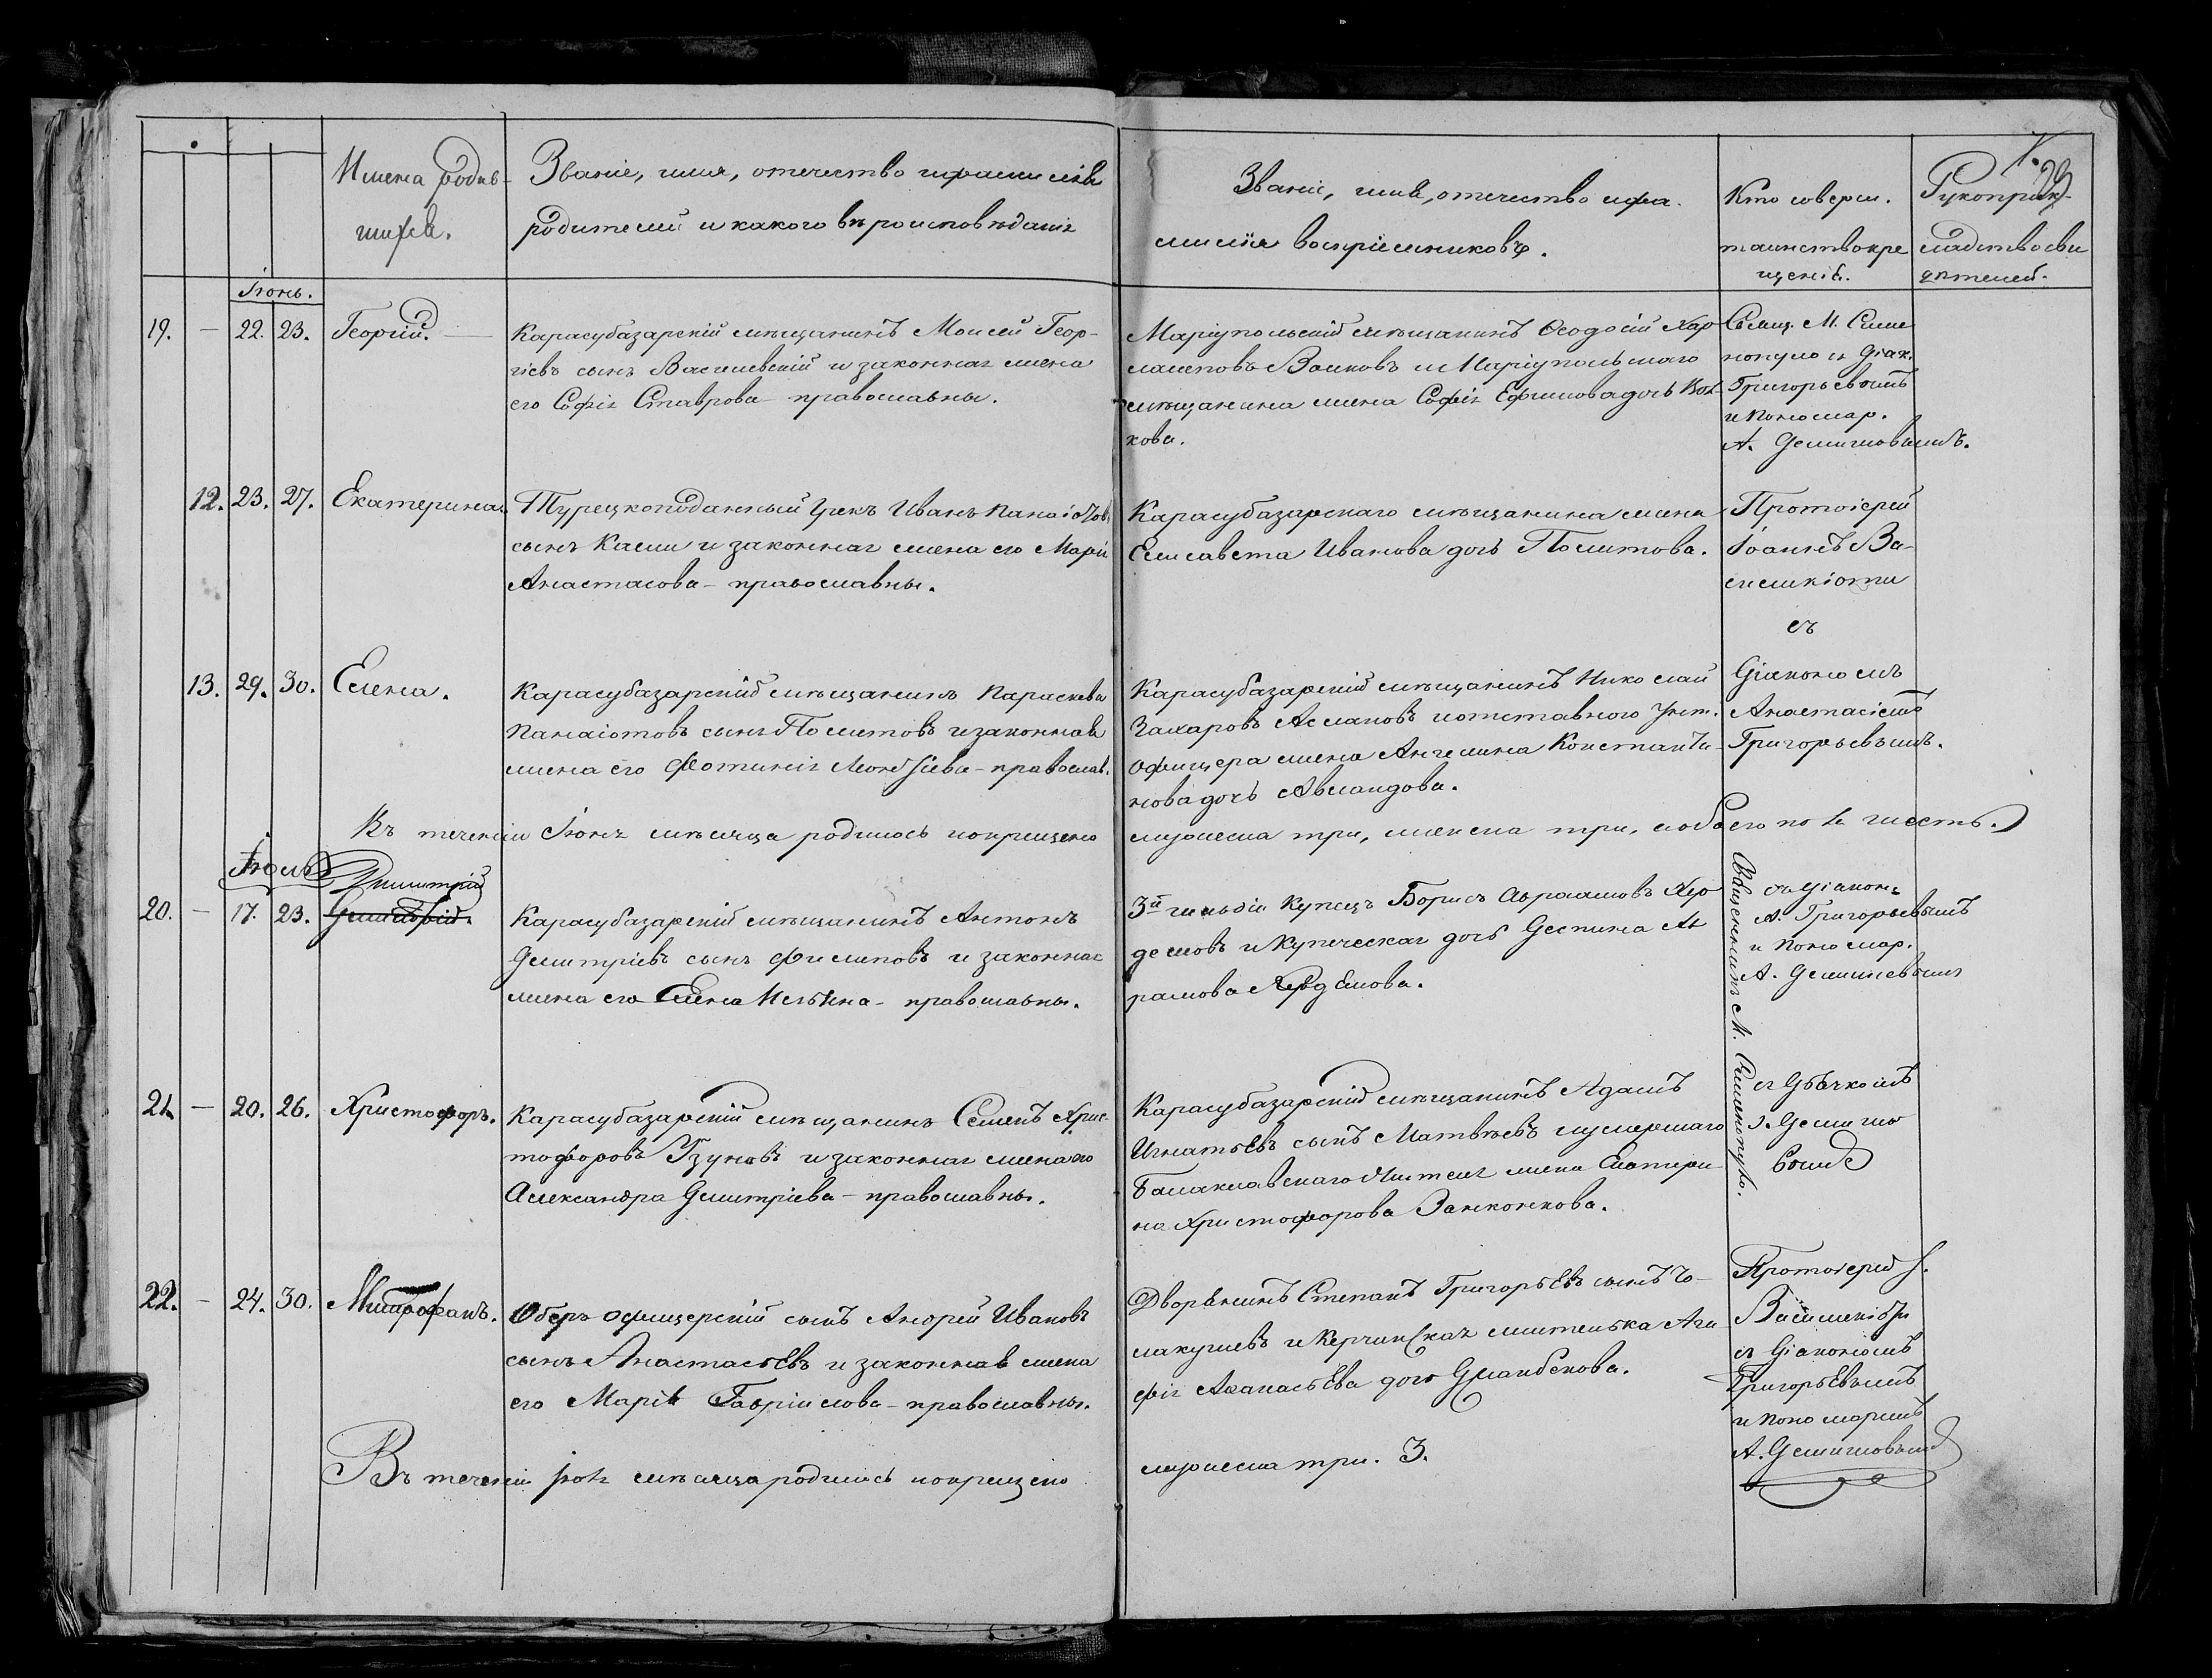 Имена родив-
шихся.
Званіе, имя, отечество и фамилія
родителей и какого вѣроисповѣданія
Званіе, имя, отечество и фа-
милія воспріемниковъ.
Кто соверш.
таинство кре
щенія.
Рукоприк-
ладство сви
дѣтелей.
Іюнь.
19. — 22. 23. Георгій. —
Карасубазарскій мѣщанинъ Моисей Геор-
гіевъ сынъ Василевскій и законная жена
его Софія Ставрова - православны.
Маріупольскій мѣщанинъ Феодосій Хар
ламповъ Волковъ и Маріупольскаго
мѣщанина жена Софія Ефимова дочь Вол
кова.
Свящ. М. Симе
нопуло и Діак.
Григорьевымъ
и Пономар.
А. Демишовымъ.
12. 23. 27. Екатерина
Турецкоподанный Грекъ Иванъ Панаіотов
сынъ Касши и законная жена его Марія
Анастасова - православны.
Карасубазарскаго мѣщанина жена
Елисавета Иванова дочь Политова.
Протоіерей
Іоаннъ Ва-
силикіоти
съ
13. 29. 30. Елена.
Карасубазарскій мѣщанинъ Параскева
Панаіотовъ сынъ Политовъ и законная
жена его Фотинія Леонтіева - православ.
Карасубазарскій мѣщанинъ Николай
Захаровъ Аслановъ и отставного Унт.
офицера жена Ангелина Константи-
нова дочь Авландова.
Діакономъ
Анастасіемъ
Григорьевымъ.
Въ теченіи Іюня мѣсяца родилось и окрещено
мужеска три, женска три, а обоего пола шесть.
Іюль
20. — 17. 23. Димитрій
Димитрій.
Карасубазарскій мѣщанинъ Антонъ
Дмитріевъ сынъ Филиповъ и законная
жена его Елена Ильина - православны.
3й гильдіи Купецъ Борисъ Авраамовъ Хар
демовъ и Купеческая дочь Деспина Ав
рамова Хардемова.
Священникъ М. Сименопуло.
съ Діакон.
А. Григорьевымъ
и Пономар.
А. Демишевымъ
21. — 20. 26. Христофоръ.
Карасубазарскій мѣщанинъ Семенъ Хрис-
тофоровъ Узуновъ и законная жена его
Александра Дмитріева - православны.
Карасубазарскій мѣщанинъ Адамъ
Игнатьевъ сынъ Матвѣевъ и умершаго
Балаклавскаго Жителя жена Екатери-
на Христофорова Занконкова.
съ Дьячкомъ
Демишо
вымъ
22. — 24. 30. Митрофанъ.
Оберъ-офицерскій сынъ Андрей Ивановъ
сынъ Анастасьевъ и законная жена
его Марія Гавріилова - православны.
Дворянинъ Степанъ Григорьевъ сынъ Чо-
лакушевъ и Керчинская жителька Ага-
фія Афанасьева дочь Дманбекова.
Протоіерей І.
Василикіоти
съ Діакономъ
Григорьевымъ
и Пономаремъ
А. Демишовымъ
Въ теченіи Іюля мѣсяца родилось и окрещено
мужеска три. 3.